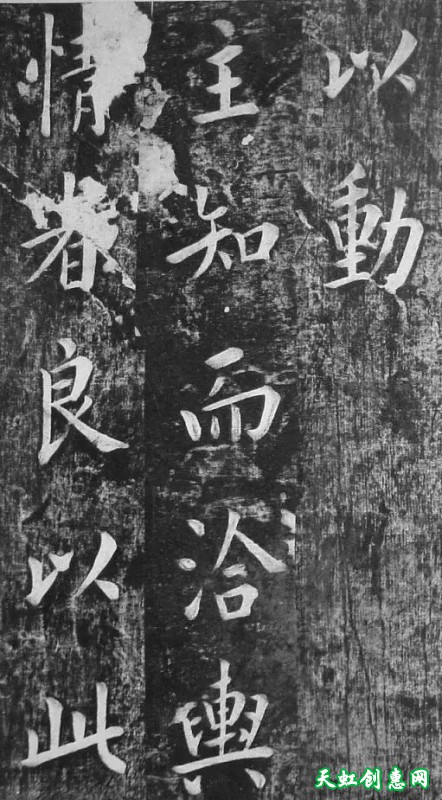 以動
主知而洽輿
情眷良以此
天虹创意网